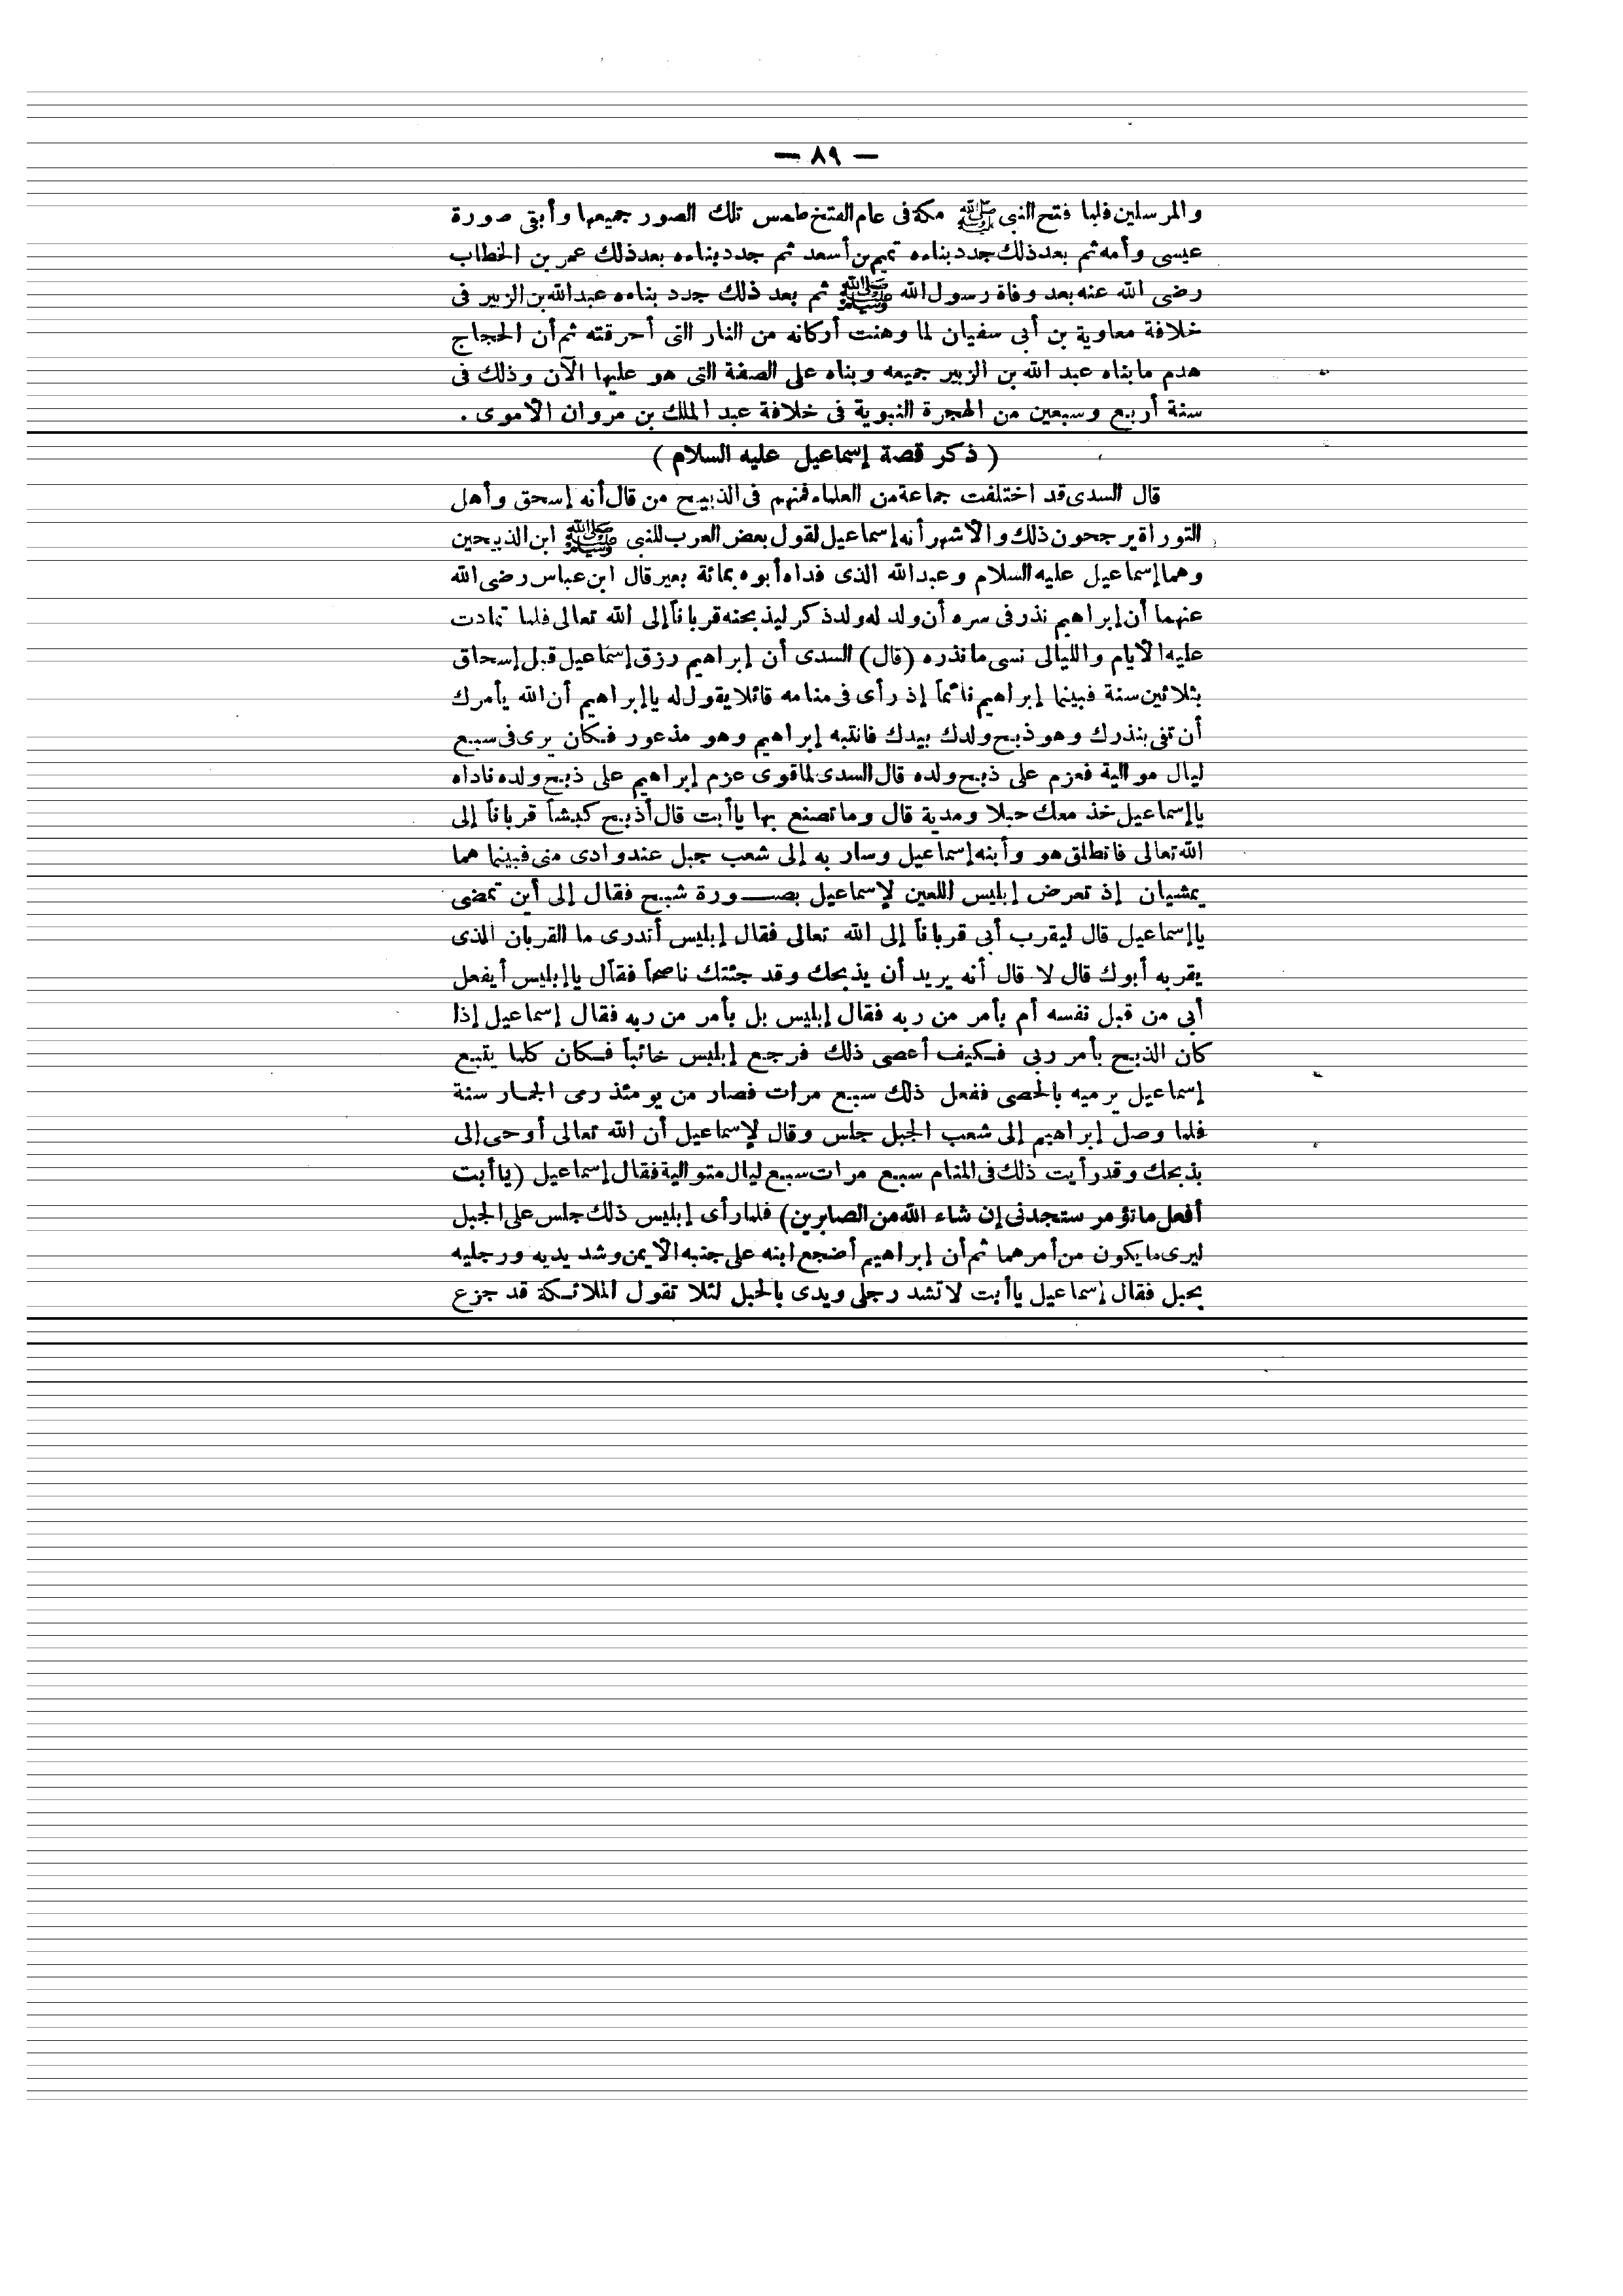 — ٨٩ —
والمرسلين فلما فتح النبى ﷺ مكة فى عام الفتح طمس تلك الصور جميعها وأبقى صورة
عيسى وأمه ثم بعد ذلك جدد بناءه تميم بن أسعد ثم جدد بناءه بعد ذلك عمر بن الخطاب
رضى الله عنه بعد وفاة رسول الله ﷺ ثم بعد ذلك جدد بناءه عبد الله بن الزبير فى
خلافة معاوية بن أبى سفيان لما وهنت أركانه من النار التى أحرقته ثم أن الحجاج
هدم ما بناه عبد الله بن الزبير جميعه وبناه على الصفة التى هو عليها الآن وذلك فى
سنة أربع وسبعين من الهجرة النبوية فى خلافة عبد الملك بن مروان الأموى .
( ذكر قصة إسماعيل عليه السلام )
قال السدى قد اختلفت جماعة من العلماء فمنهم فى الذبيح من قال أنه إسحق وأهل
التوراة يرجحون ذلك والأشهر أنه إسماعيل لقول بعض العرب للنبى ﷺ ابن الذبيحين
وهما إسماعيل عليه السلام وعبد الله الذى فداه أبوه بمائة بعير قال ابن عباس رضى الله
عنهما أن إبراهيم نذر فى سره أن ولد له ولد ذكر ليذبحنه قرباناً إلى الله تعالى فلما تمادت
عليه الأيام والليالى نسى ما نذره (قال) السدى أن إبراهيم رزق إسماعيل قبل إسحاق
بثلاثين سنة فبينما إبراهيم نائماً إذ رأى فى منامه قائلا يقول له يا إبراهيم أن الله يأمرك
أن تفى بنذرك وهو ذبح ولدك بيدك فانتبه إبراهيم وهو مذعور فكان يرى فى سبع
ليال موالية فعزم على ذبح ولده قال السدى لما قوى عزم إبراهيم على ذبح ولده ناداه
يا إسماعيل خذ معك حبلا ومدية قال وما تصنع بها يا أبت قال أذبح كبشاً قرباناً إلى
الله تعالى فانطلق هو وأبنه إسماعيل وسار به إلى شعب جبل عند وادى منى فبينما هما
يمشيان إذ تعرض إبليس اللعين لإسماعيل بصورة شبح فقال إلى أين تمضى
يا إسماعيل قال ليقرب أبى قرباناً إلى الله تعالى فقال إبليس أتدرى ما القربان الذى
يقربه أبوك قال لا قال أنه يريد أن يذبحك وقد جئتك ناصحاً فقال يا إبليس أيفعل
أبى من قبل نفسه أم بأمر من ربه فقال إبليس بل بأمر من ربه فقال إسماعيل إذا
كان الذبح بأمر ربى فكيف أعصى ذلك فرجع إبليس خائباً فكان كلما يتبع
إسماعيل يرميه بالحصى ففعل ذلك سبع مرات فصار من يومئذ رمى الجمار سنة
فلما وصل إبراهيم إلى شعب الجبل جلس وقال لإسماعيل أن الله تعالى أوحى إلى
بذبحك وقد رأيت ذلك فى المنام سبع مرات سبع ليال متوالية فقال إسماعيل (يا أبت
أفعل ما تؤمر ستجدنى إن شاء الله من الصابرين) فلما رأى إبليس ذلك جلس على الجبل
ليرى ما يكون من أمرهما ثم أن إبراهيم أضجع ابنه على جنبه الأيمن وشد يديه ورجليه
بحبل فقال إسماعيل يا أبت لا تشد رجلى ويدى بالحبل لئلا تقول الملائكة قد جزع